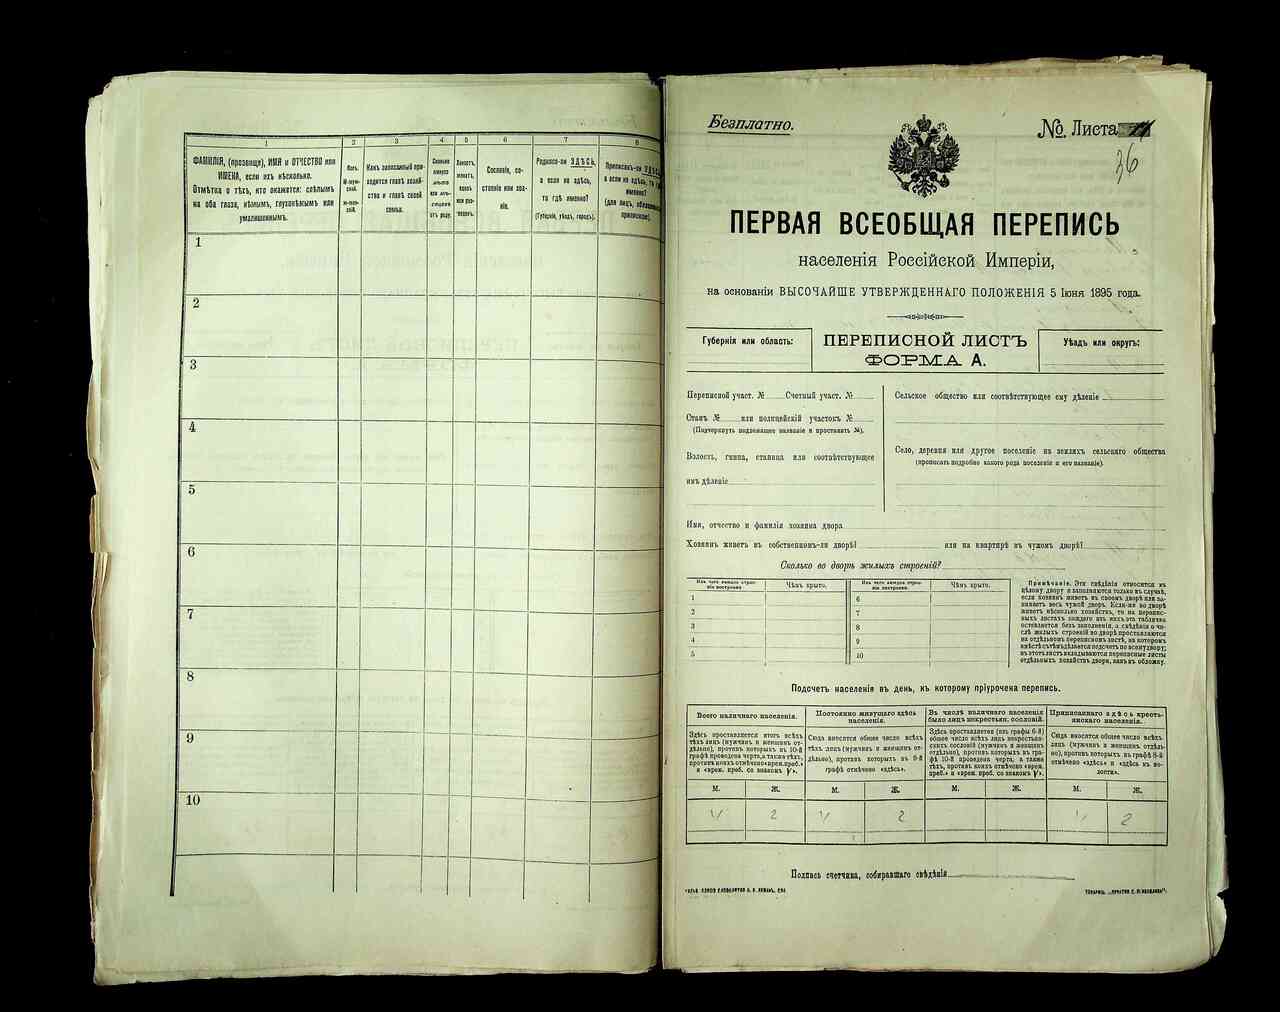 1
2
3
4
5
6
7
8
ФАМИЛІЯ, (прозвище), ИМЯ и ОТЧЕСТВО или
ИМЕНА, если ихъ нѣсколько.
Отмѣтка о тѣхъ, кто окажется: слѣпымъ
на оба глаза, нѣмымъ, глухонѣмымъ или
умалишеннымъ.
Полъ.
М-муж-
ской.
Ж-жен-
скій.
Какъ записанный при-
ходится главѣ хозяй-
ства и главѣ своей
семьи.
Сколько
минуло
лѣтъ
или мѣ-
сяцевъ
отъ роду.
Холостъ,
женатъ,
вдовъ
или раз-
веденъ.
Сословіе, со-
стояніе или зва-
ніе.
Родился-ли ЗДѢСЬ,
а если не здѣсь,
то гдѣ именно?
(Губернія, уѣздъ, городъ).
Приписанъ-ли ЗДѢСЬ,
а если не здѣсь, то гдѣ
именно?
(для лицъ, обязанныхъ
припиской).
1
2
3
4
5
6
7
8
9
10
Безплатно.
№ Листа
36
ПЕРВАЯ ВСЕОБЩАЯ ПЕРЕПИСЬ
населенія Россійской Имперіи,
на основаніи ВЫСОЧАЙШЕ УТВЕРЖДЕННАГО ПОЛОЖЕНІЯ 5 Іюня 1895 года.
Губернія или область:
ПЕРЕПИСНОЙ ЛИСТЪ
ФОРМА А.
Уѣздъ или округъ:
Переписной участ. № Счетный участ. №
Станъ № или полицейскій участокъ №
(Подчеркнуть подлежащее названіе и проставить №).
Волость, гмина, станица или соотвѣтствующее
имъ дѣленіе
Сельское общество или соотвѣтствующее ему дѣленіе
Село, деревня или другое поселеніе на земляхъ сельскаго общества
(прописать подробно какого рода поселеніе и его названіе).
Имя, отчество и фамилія хозяина двора
Хозяинъ живетъ въ собственномъ-ли дворѣ? или на квартирѣ въ чужомъ дворѣ?
Сколько во дворѣ жилыхъ строеній?
Изъ чего жилыя строе-
нія построены.
Чѣмъ крыто.
Изъ чего жилыя строе-
нія построены.
Чѣмъ крыто.
1
2
3
4
5
6
7
8
9
10
Примѣчаніе. Эти свѣдѣнія относятся къ
цѣлому двору и заполняются только въ случаѣ,
если хозяинъ живетъ въ своемъ дворѣ или за-
нимаетъ весь чужой дворъ. Если-же во дворѣ
живетъ нѣсколько хозяйствъ, то на перепис-
ныхъ листахъ каждаго изъ нихъ эта табличка
оставляется безъ заполненія, а свѣдѣнія о чи-
слѣ жилыхъ строеній во дворѣ проставляются
на отдѣльномъ переписномъ листѣ, на которомъ
вмѣстѣ съ тѣмъ дѣлается подсчетъ по всему двору;
въ этотъ листъ вкладываются переписные листы
отдѣльныхъ хозяйствъ двора, какъ въ обложку.
Подсчетъ населенія въ день, къ которому пріурочена перепись.
Всего наличнаго населенія.
Здѣсь проставляется итогъ всѣхъ
тѣхъ лицъ (мужчинъ и женщинъ от-
дѣльно), противъ которыхъ въ 10-й
графѣ проведена черта, а также тѣхъ,
противъ коихъ отмѣчено «врем. преб.»
и «врем. преб. со знакомъ V».
Постоянно живущаго здѣсь
населенія.
Сюда вносится общее число всѣхъ
тѣхъ лицъ (мужчинъ и женщинъ от-
дѣльно), противъ которыхъ въ 9-й
графѣ отмѣчено «здѣсь».
Въ числѣ наличнаго населенія
было лицъ некрестьян. сословій.
Здѣсь проставляется (изъ графы 6-й)
общее число всѣхъ лицъ некрестьян-
скихъ сословій (мужчинъ и женщинъ
отдѣльно), противъ которыхъ въ гра-
фѣ 10-й проведена черта, а также
тѣхъ, противъ коихъ отмѣчено «врем.
преб.» и «врем. преб. со знакомъ V».
Приписаннаго здѣсь кресть-
янскаго населенія.
Сюда вносится общее число всѣхъ
лицъ (мужчинъ и женщинъ отдѣль-
но), противъ которыхъ въ графѣ 8-й
отмѣчено «здѣсь» и «здѣсь въ во-
лости».
М.
Ж.
М.
Ж.
М.
Ж.
М.
Ж.
2
2
2
Подпись счетчика, собиравшаго свѣдѣнія